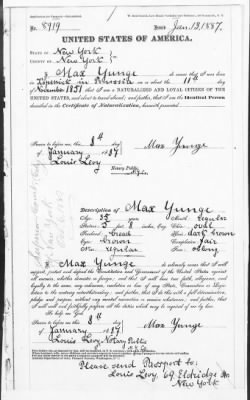 No. 8919 Issued Jan. 13, 1887.
UNITED STATES OF AMERICA.
STATE OF New York
COUNTY OF New York
I, Max Yunge do swear that I was born
in in Prussia on or about the 11th day
of 1851 that I am a NATURALIZED AND LOYAL CITIZEN OF THE
UNITED STATES, and about to travel abroad; and further, that I am the Identical Person
described in the Certificate of Naturalization, herewith presented.
Sworn to before me, this 8th
day of January 1887
Louis Levy
Notary Public
Max Yunge
Description of Max Yunge
Age: 35 years
Mouth: regular
Stature: 5 feet 8 inches, Eng.
Chin: oval
Forehead:
Hair: dark brown
Eyes: brown
Complexion: fair
Nose: regular
Face: oblong
I, Max Yunge, do solemnly swear that I will
support, protect and defend the Constitution and Government of the United States against
all enemies, whether domestic or foreign; and that I will bear true faith, allegiance, and
loyalty to the same, any ordinance, resolution or law of any State, Convention or Legis-
lature to the contrary notwithstanding; and further, that I do this with a full determination,
pledge and purpose, without any mental reservation or evasion whatsoever; and further, that
I will well and faithfully perform all the duties which may be required of me by law.
So help me God.
Sworn to before me this 8th
day of January 1887
Louis Levy Notary Public
Max Yunge
Please send Passport to:
Louis Levy, 69 Eldridge St.
New York